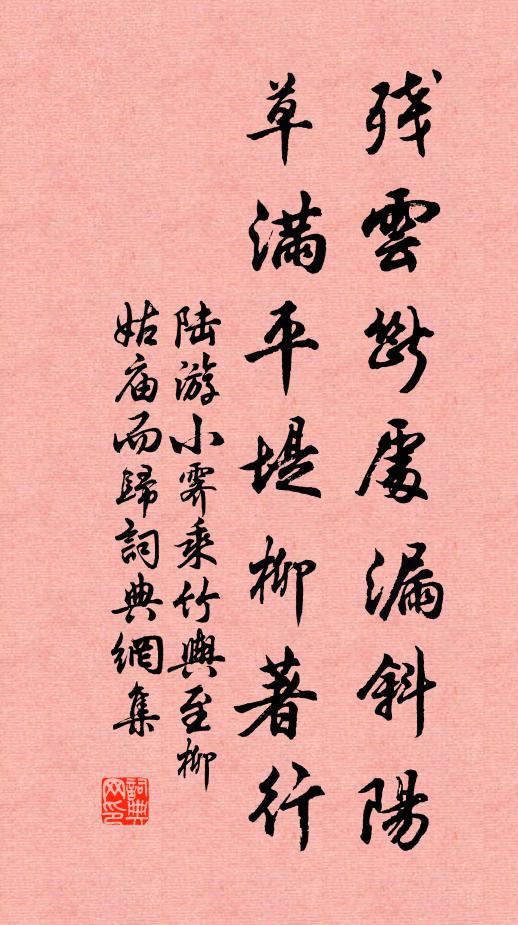 残雲斷處漏斜陽
草滿平堤柳著行
陆游小霽乘竹輿至柳
姑庙而歸詞典網集
詞典
网印